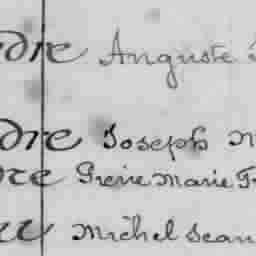 dre Auguste
dre Joseph
Pierre Marie
Michel Jean